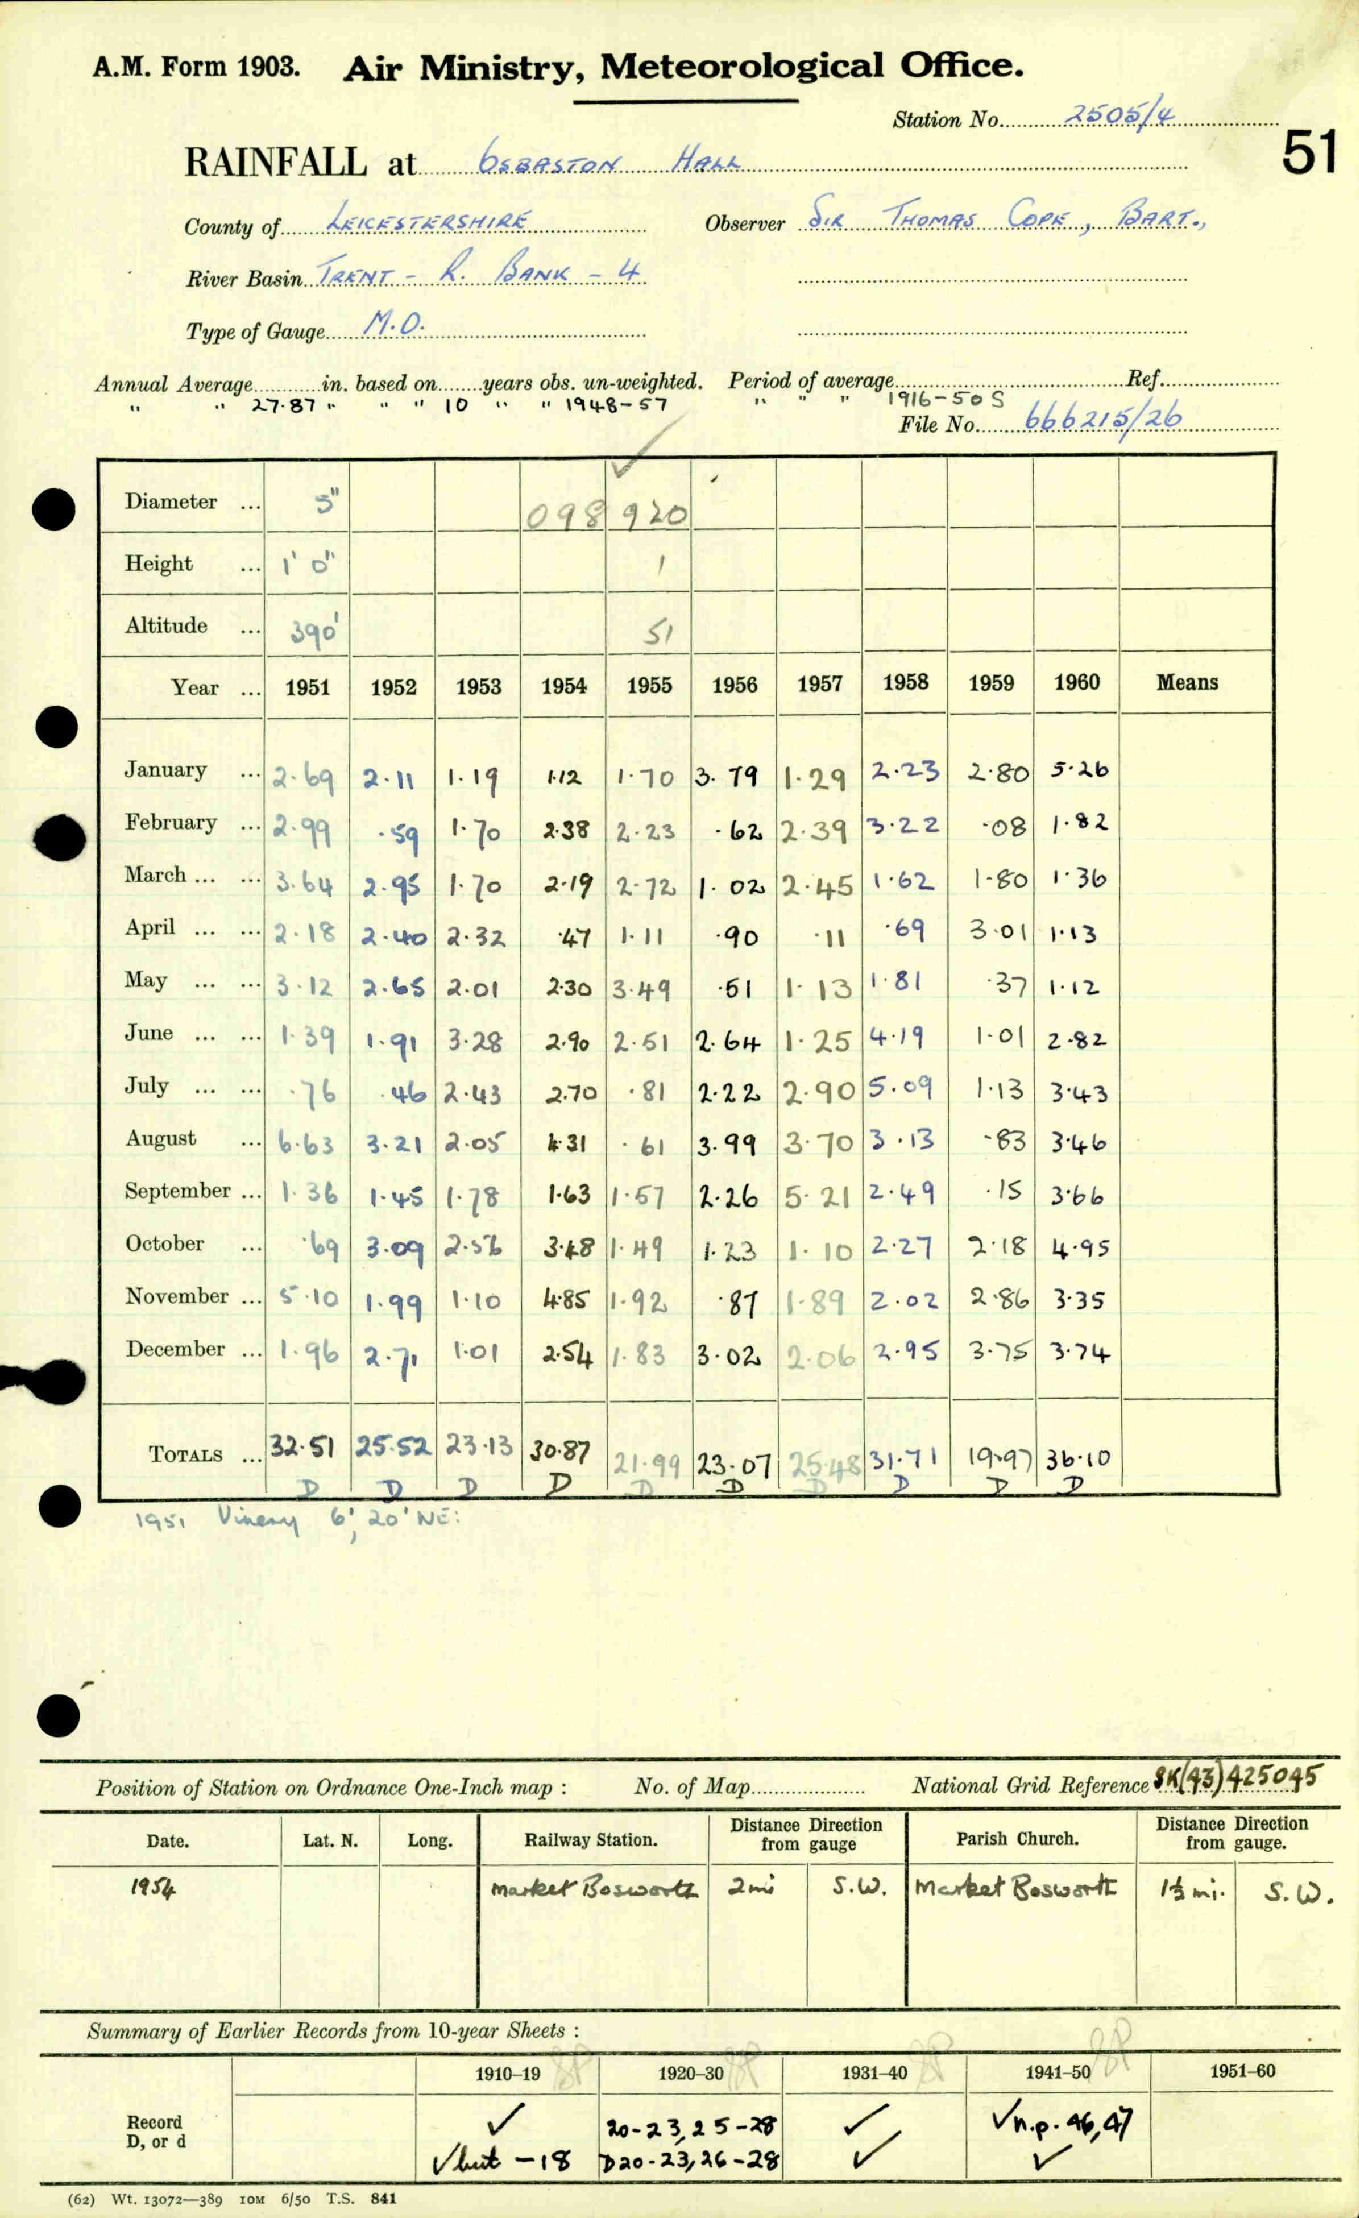 A.M. Form 1903. Air Ministry, Meteorological Office.
Station No. 2505/4
51
RAINFALL at OSBASTON HALL
County of LEICESTERSHIRE Observer SIR THOMAS COPE, BART.,
River Basin TRENT - R. BANK - 4
Type of Gauge M.O.
Annual Average in. based on years obs. un-weighted. Period of average Ref.
" " 27.87 " " " 10 " " 1948-57 " " " 1916-50 S
File No. 666215/26
Diameter ... 5" 098 920
Height ... 1' 0" 1
Altitude ... 390' 51
Year ... 1951 1952 1953 1954 1955 1956 1957 1958 1959 1960 Means
January ... 2.69 2.11 1.19 1.12 1.70 3.79 1.29 2.23 2.80 5.26
February ... 2.99 .59 1.70 2.38 2.23 .62 2.39 3.22 .08 1.82
March ... ... 3.64 2.95 1.70 2.19 2.72 1.02 2.45 1.62 1.80 1.36
April ... ... 2.18 2.40 2.32 .47 1.11 .90 .11 .69 3.01 1.13
May ... ... 3.12 2.65 2.01 2.30 3.49 .51 1.13 1.81 .37 1.12
June ... ... 1.39 1.91 3.28 2.90 2.51 2.64 1.25 4.19 1.01 2.82
July ... ... .76 .46 2.43 2.70 .81 2.22 2.90 5.09 1.13 3.43
August ... 6.63 3.21 2.05 4.31 .61 3.99 3.70 3.13 .83 3.46
September ... 1.36 1.45 1.78 1.63 1.57 2.26 5.21 2.49 .15 3.66
October ... .69 3.09 2.56 3.48 1.49 1.23 1.10 2.27 2.18 4.95
November ... 5.10 1.99 1.10 4.85 1.92 .87 1.89 2.02 2.86 3.35
December ... 1.96 2.71 1.01 2.54 1.83 3.02 2.06 2.95 3.75 3.74
TOTALS ... 32.51 25.52 23.13 30.87 21.99 23.07 25.48 31.71 19.97 36.10
D D D D D D D D D D
1951 Vinery 6', 20' NE:
Position of Station on Ordnance One-Inch map : No. of Map National Grid Reference SK(43)425045
Date. Lat. N. Long. Railway Station. Distance Direction from gauge Parish Church. Distance Direction from gauge.
1954 Market Bosworth 2mi S.W. Market Bosworth 1½ mi. S.W.
Summary of Earlier Records from 10-year Sheets :
1910–19 1920–30 1931–40 1941–50 1951–60
Record ✓ 20-23, 25-28 ✓ ✓ n.p. 46, 47
D, or d ✓ but -18 D20-23, 26-28 ✓ ✓
(62) Wt. 13072—389 10M 6/50 T.S. 841